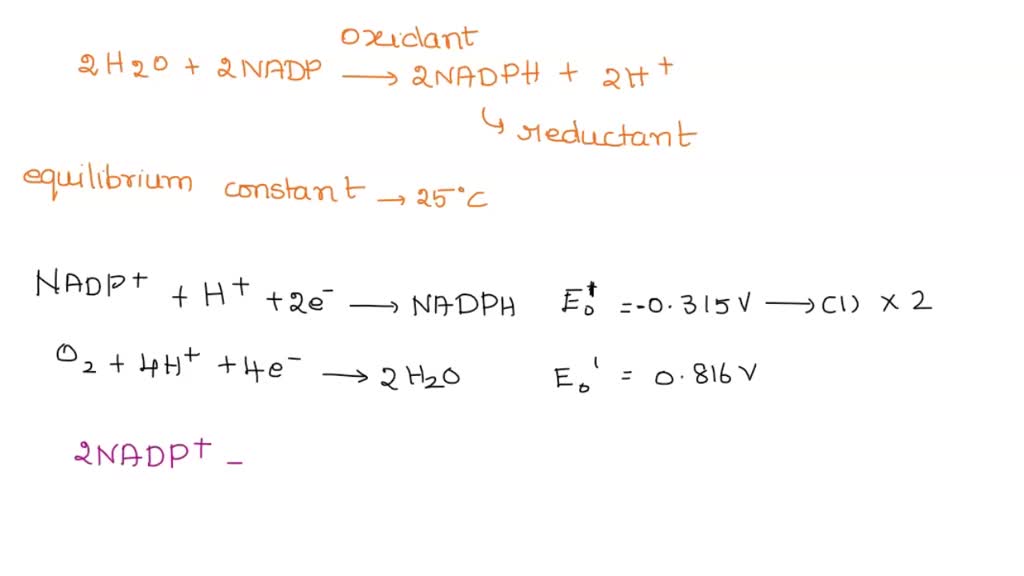 oxidant
2H2O + 2NADP ⟶ 2NADPH + 2H⁺
↳ reductant
equilibrium constant → 25°C
NADP⁺ + H⁺ + 2e⁻ ⟶ NADPH E₀' = -0.315V ⟶ (1) × 2
O₂ + 4H⁺ + 4e⁻ ⟶ 2H₂O E₀' = 0.816V
2NADP⁺ –